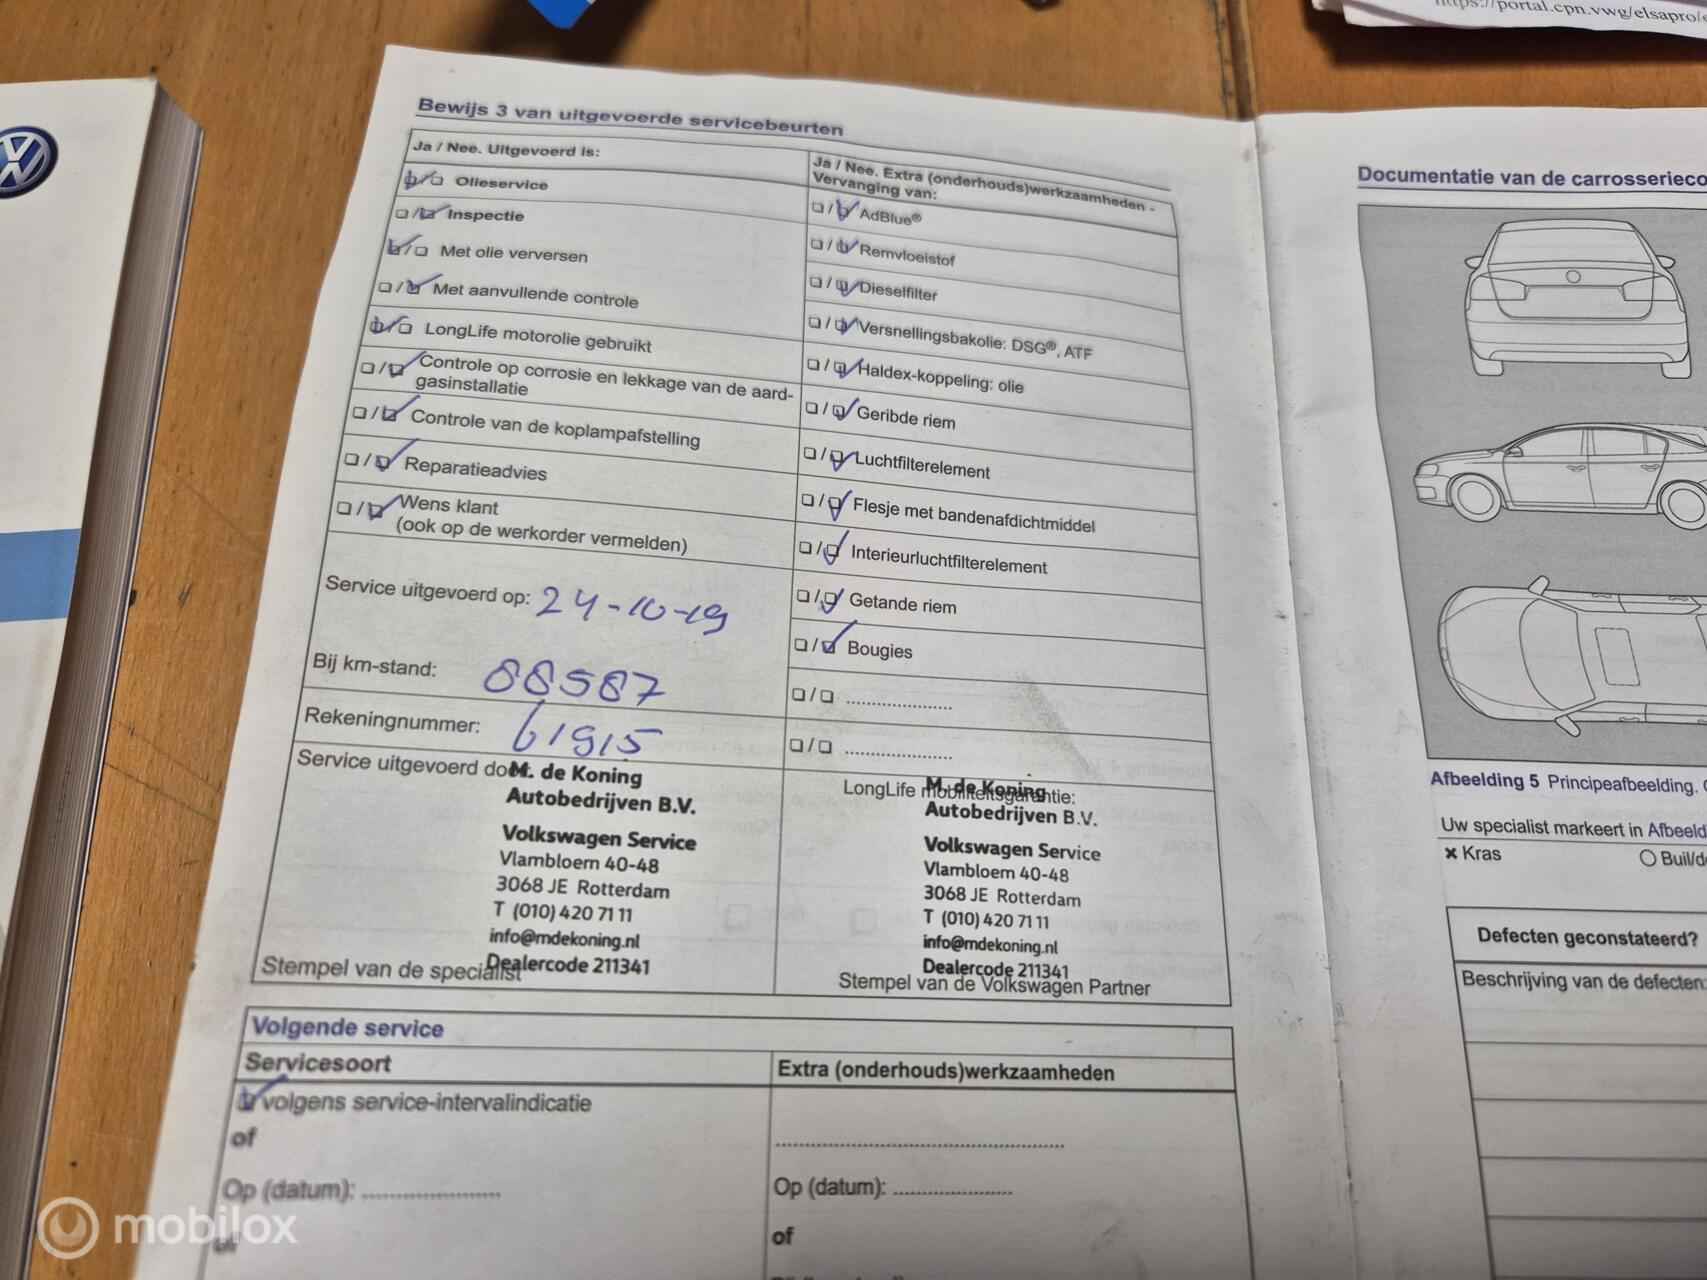 https://portal.cpn.vwg/elsapro/
Bewijs 3 van uitgevoerde servicebeurten
Ja / Nee. Uitgevoerd is:
Olieservice
Inspectie
Met olie verversen
Met aanvullende controle
LongLife motorolie gebruikt
Controle op corrosie en lekkage van de aard-
gasinstallatie
Controle van de koplampafstelling
Reparatieadvies
Wens klant
(ook op de werkorder vermelden)
Service uitgevoerd op: 24-10-19
Bij km-stand: 88587
Rekeningnummer: 61915
Service uitgevoerd door:
M. de Koning
Autobedrijven B.V.
Volkswagen Service
Vlambloem 40-48
3068 JE Rotterdam
T (010) 420 71 11
info@mdekoning.nl
Dealercode 211341
Stempel van de specialist
Ja / Nee. Extra (onderhouds)werkzaamheden -
Vervanging van:
AdBlue®
Remvloeistof
Dieselfilter
Versnellingsbakolie: DSG®, ATF
Haldex-koppeling: olie
Geribde riem
Luchtfilterelement
Flesje met bandenafdichtmiddel
Interieurluchtfilterelement
Getande riem
Bougies
LongLife mobiliteitsgarantie:
M. de Koning
Autobedrijven B.V.
Volkswagen Service
Vlambloem 40-48
3068 JE Rotterdam
T (010) 420 71 11
info@mdekoning.nl
Dealercode 211341
Stempel van de Volkswagen Partner
Volgende service
Servicesoort
volgens service-intervalindicatie
of
Op (datum):
of
Extra (onderhouds)werkzaamheden
Op (datum):
of
Documentatie van de carrosserieco
Afbeelding 5 Principeafbeelding.
Uw specialist markeert in Afbeeld
Kras
Buil/d
Defecten geconstateerd?
Beschrijving van de defecten:
mobilox